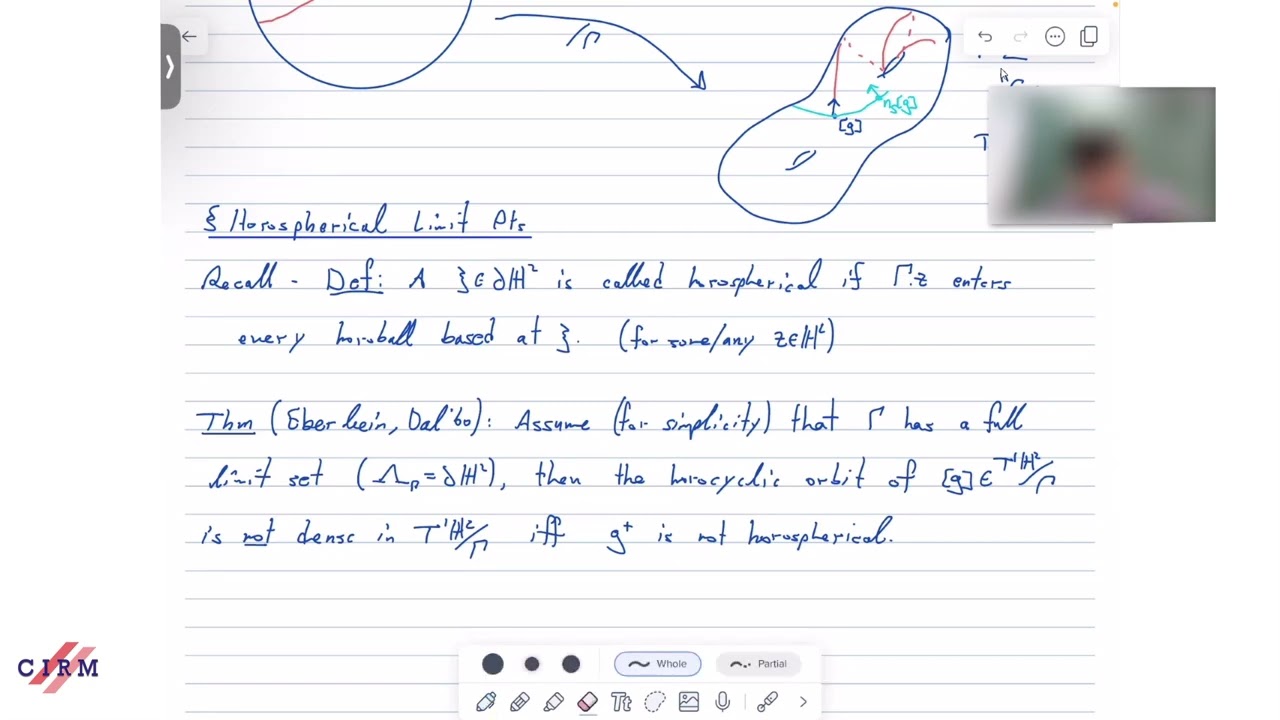 /Γ
[g]
n_s[g]
§ Horospherical Limit Pts
Recall - Def: A ξ∈∂ℍ² is called horospherical if Γ.z enters
every horoball based at ξ. (for some/any z∈ℍ²)
Thm (Eberlein, Dal'bo): Assume (for simplicity) that Γ has a full
limit set (Λ_Γ=∂ℍ²), then the horocyclic orbit of [g]∈T¹ℍ²/Γ
is not dense in T¹ℍ²/Γ iff g⁺ is not horospherical.
Whole
Partial
Tt
CIRM